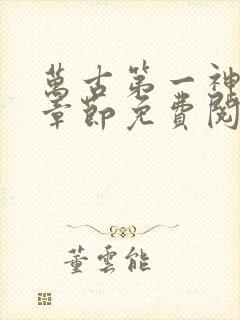 萬古第一神
章節免費閱
董雲能